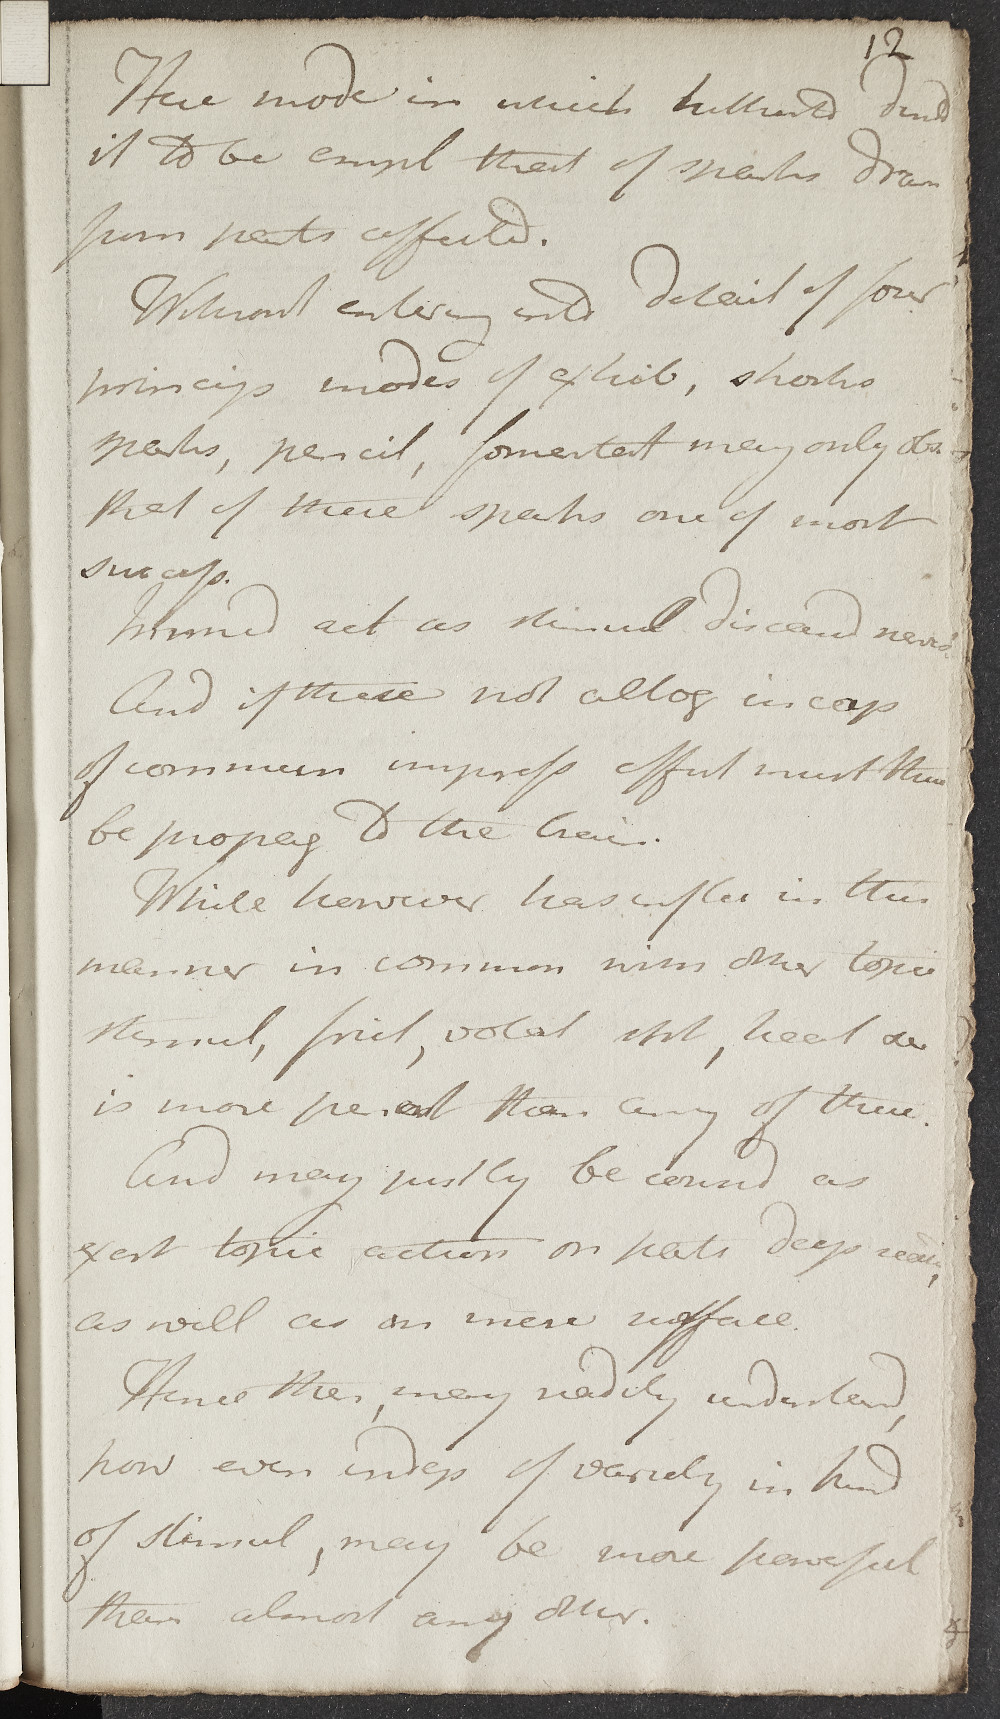 12
Here mode in which hitherto dired
it to be empl that of sparks dran
from parts affected.
Without entering into detail of four
princip modes of exhib, shocks
sparks, pencil, foment may only obs
that of these sparks one of most
success.
Immed act as stimul discand nerves
And if these not altog incap
of common impress effect must thus
be propag to the brain.
While however has influ in this
manner in common with other topic
stimul, frict, volat spt, heat &c
is more penet than any of these.
And may justly be consid as
exert topic action on parts deep seat,
as well as on mere surface.
Hence then, may readily understand,
how even indep of variety in kind
of stimul, may be more powerful
than almost any other.